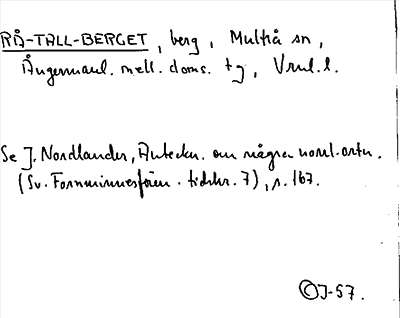 RÅ-TALL-BERGET, berg, Multrå sn,
Ångermanl. mell. doms. tg, Vnl. l.
Se J. Nordlander, Anteckn. om några norrl. ortn.
(Sv. Fornminnesfören. tidskr. 7), s. 167.
J-57.